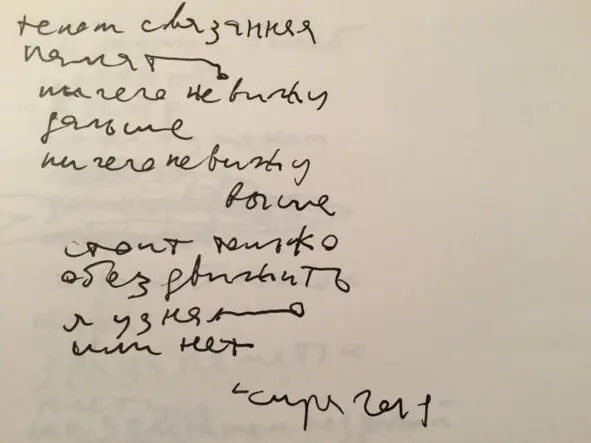 связанная
память
ничего не вижу
дальше
ничего не вижу
выше
стоит только
обездвижить
я узнал
или нет